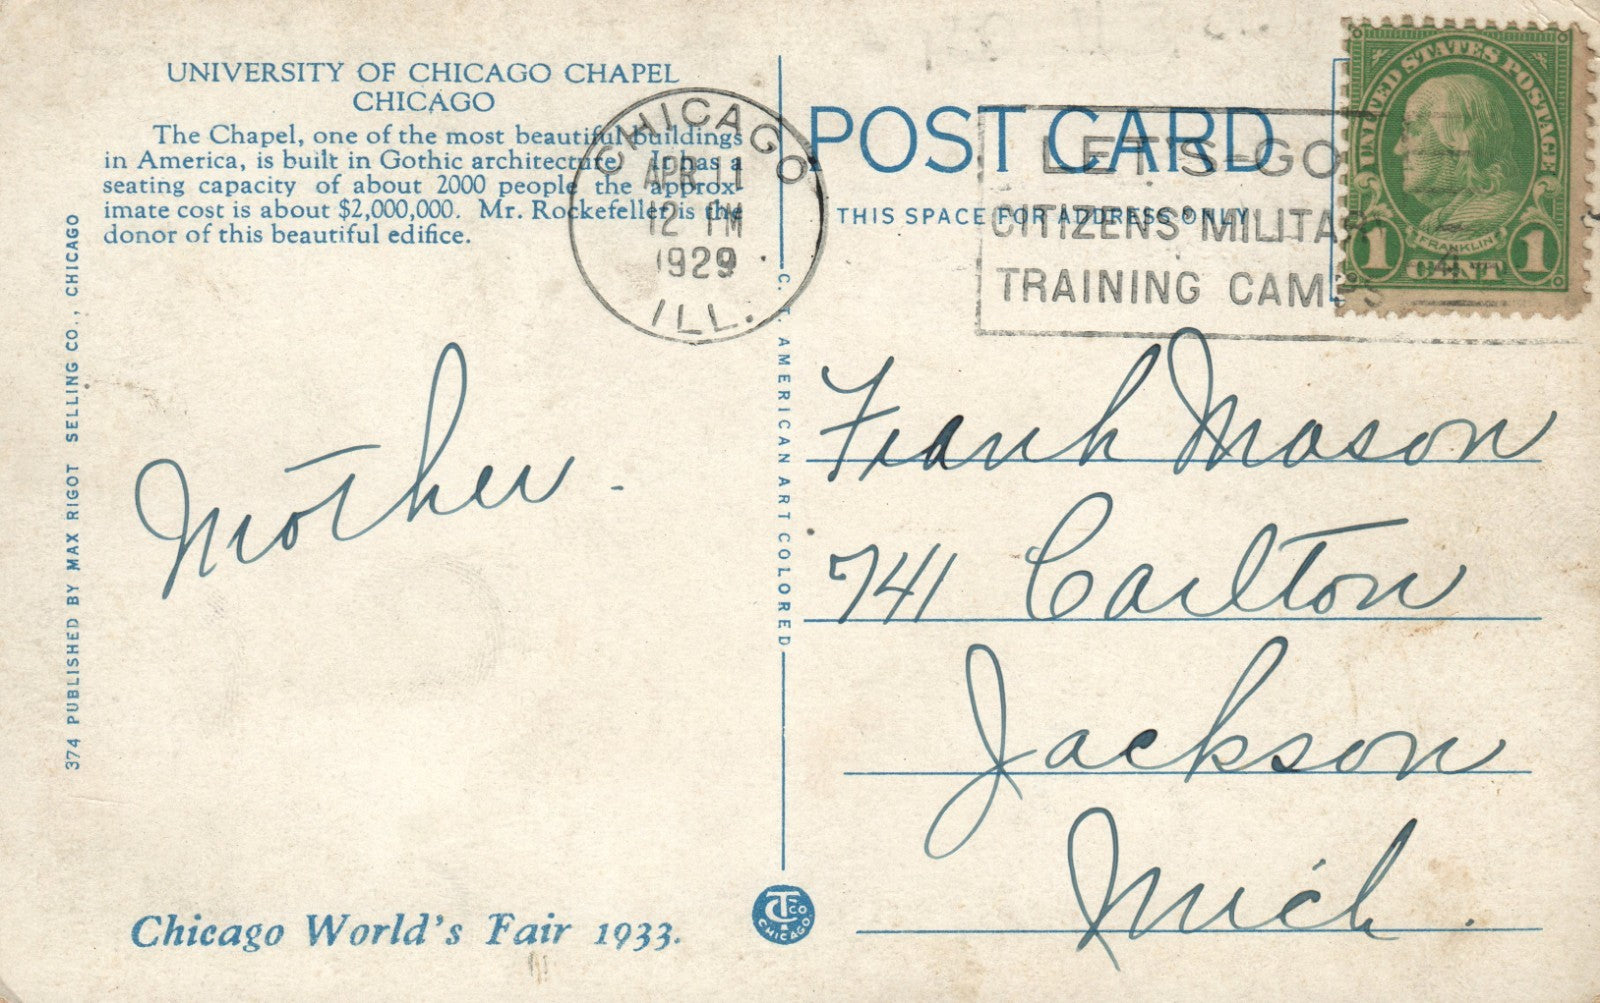 UNIVERSITY OF CHICAGO CHAPEL
CHICAGO
The Chapel, one of the most beautiful buildings
in America, is built in Gothic architecture. It has a
seating capacity of about 2000 people the approx-
imate cost is about $2,000,000. Mr. Rockefeller is the
donor of this beautiful edifice.
374 PUBLISHED BY MAX RIGOT SELLING CO., CHICAGO
Mother -
Chicago World's Fair 1933.
CHICAGO
APR 11
12 PM
1929
ILL.
C. T. AMERICAN ART COLORED
CT CO
CHICAGO
POST CARD
THIS SPACE FOR ADDRESS ONLY
LET'S GO
CITIZENS' MILITARY
TRAINING CAMPS
UNITED STATES POSTAGE
FRANKLIN
1 CENT 1
Frank Mason
741 Carlton
Jackson
Mich.